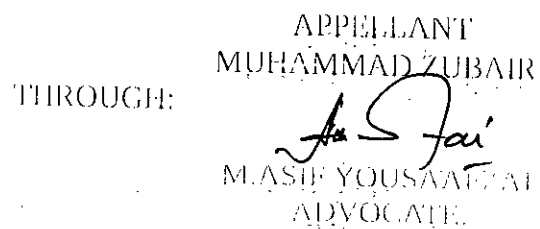 APPELLANT
MUHAMMAD ZUBAIR
THROUGH:
M.ASIF YOUSAFZAI
ADVOCATE.